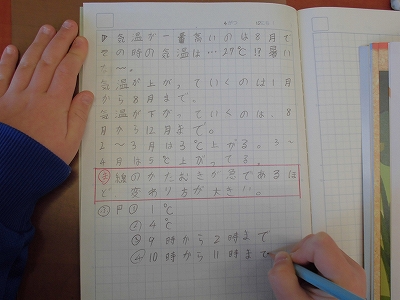 気温が一番高いのは8月で
その時の気温は…27℃!?暑い
〜〜。
気温が上がっていくのは1月
から8月まで。
気温が下がっていくのは、8
月から12月まで。
2〜3月は3℃上がる。3〜
4月は5℃上がってる。
線のかたむきが急であるほ
ど、変わり方が大きい。
① 1℃
② 4℃
③ 9時から2時まで
④ 10時から11時まで